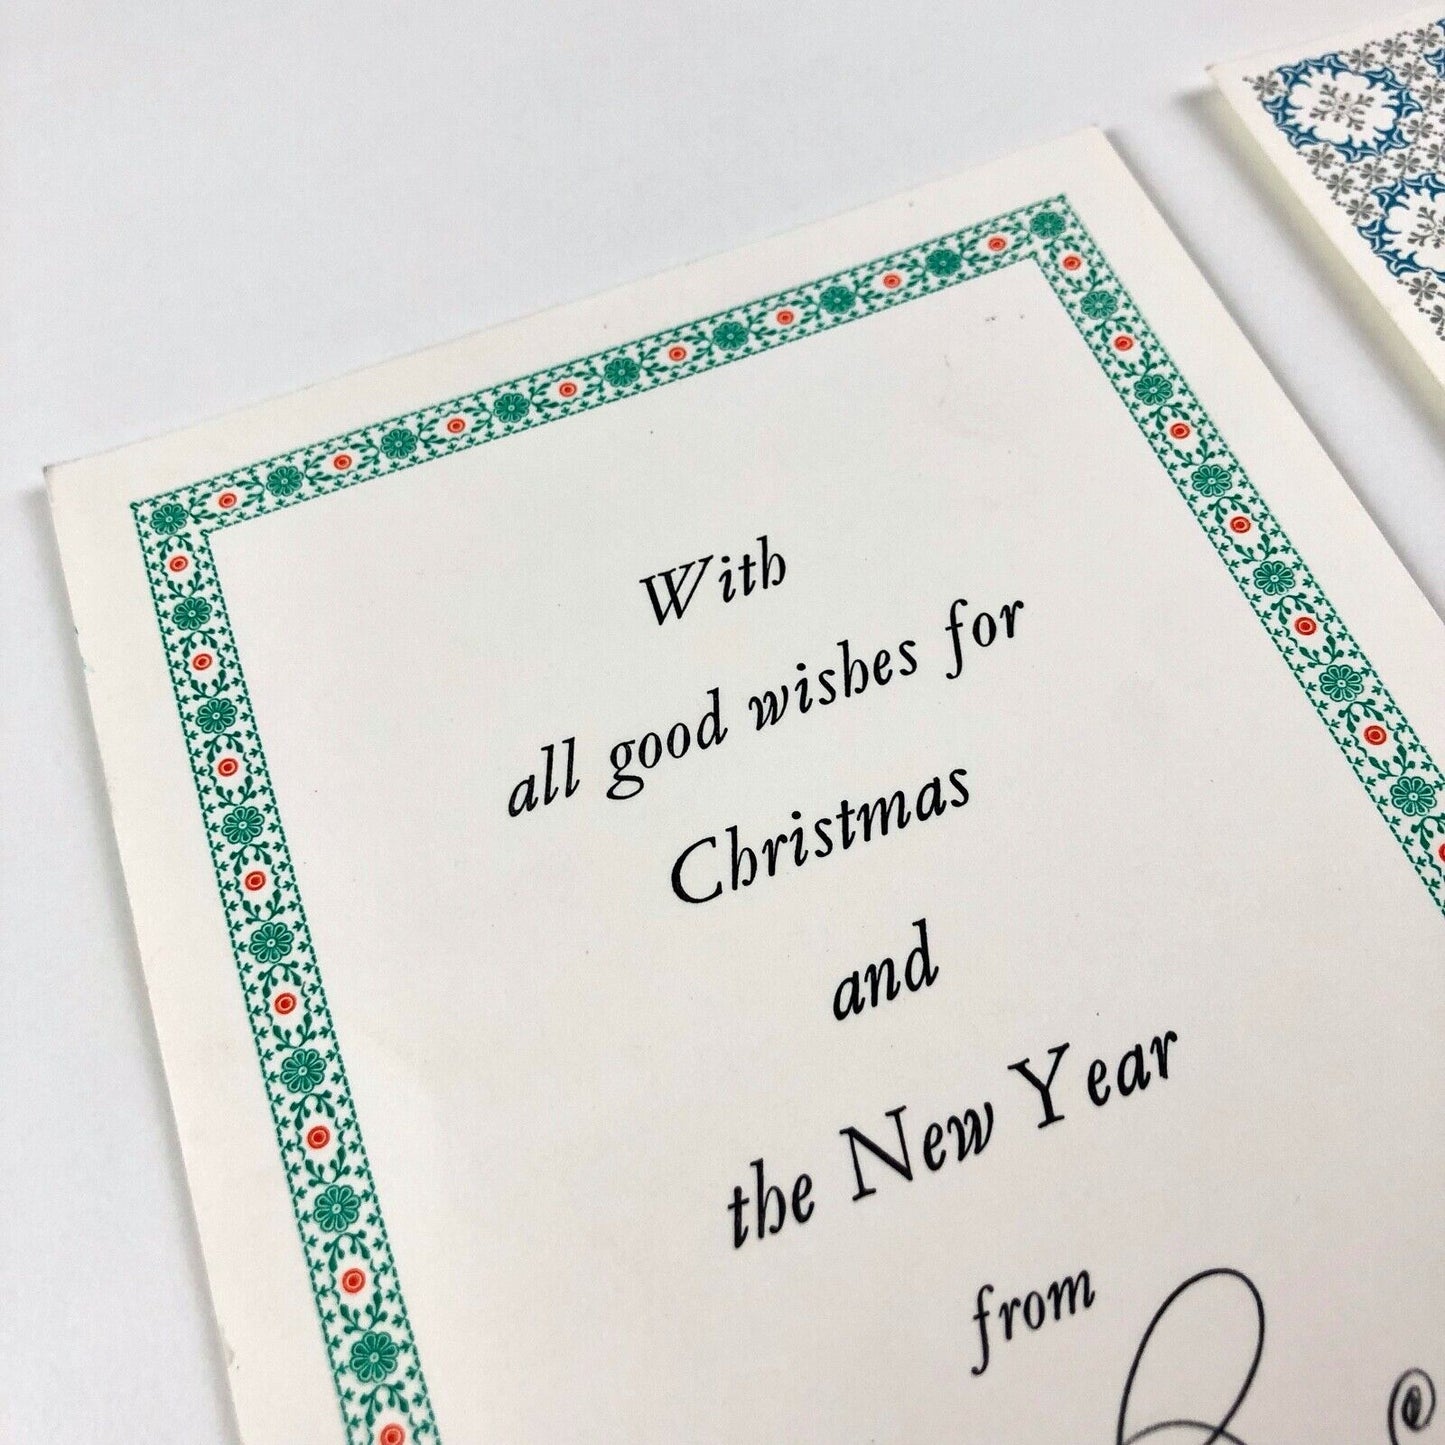 With
all good wishes for
Christmas
and
the New Year
from